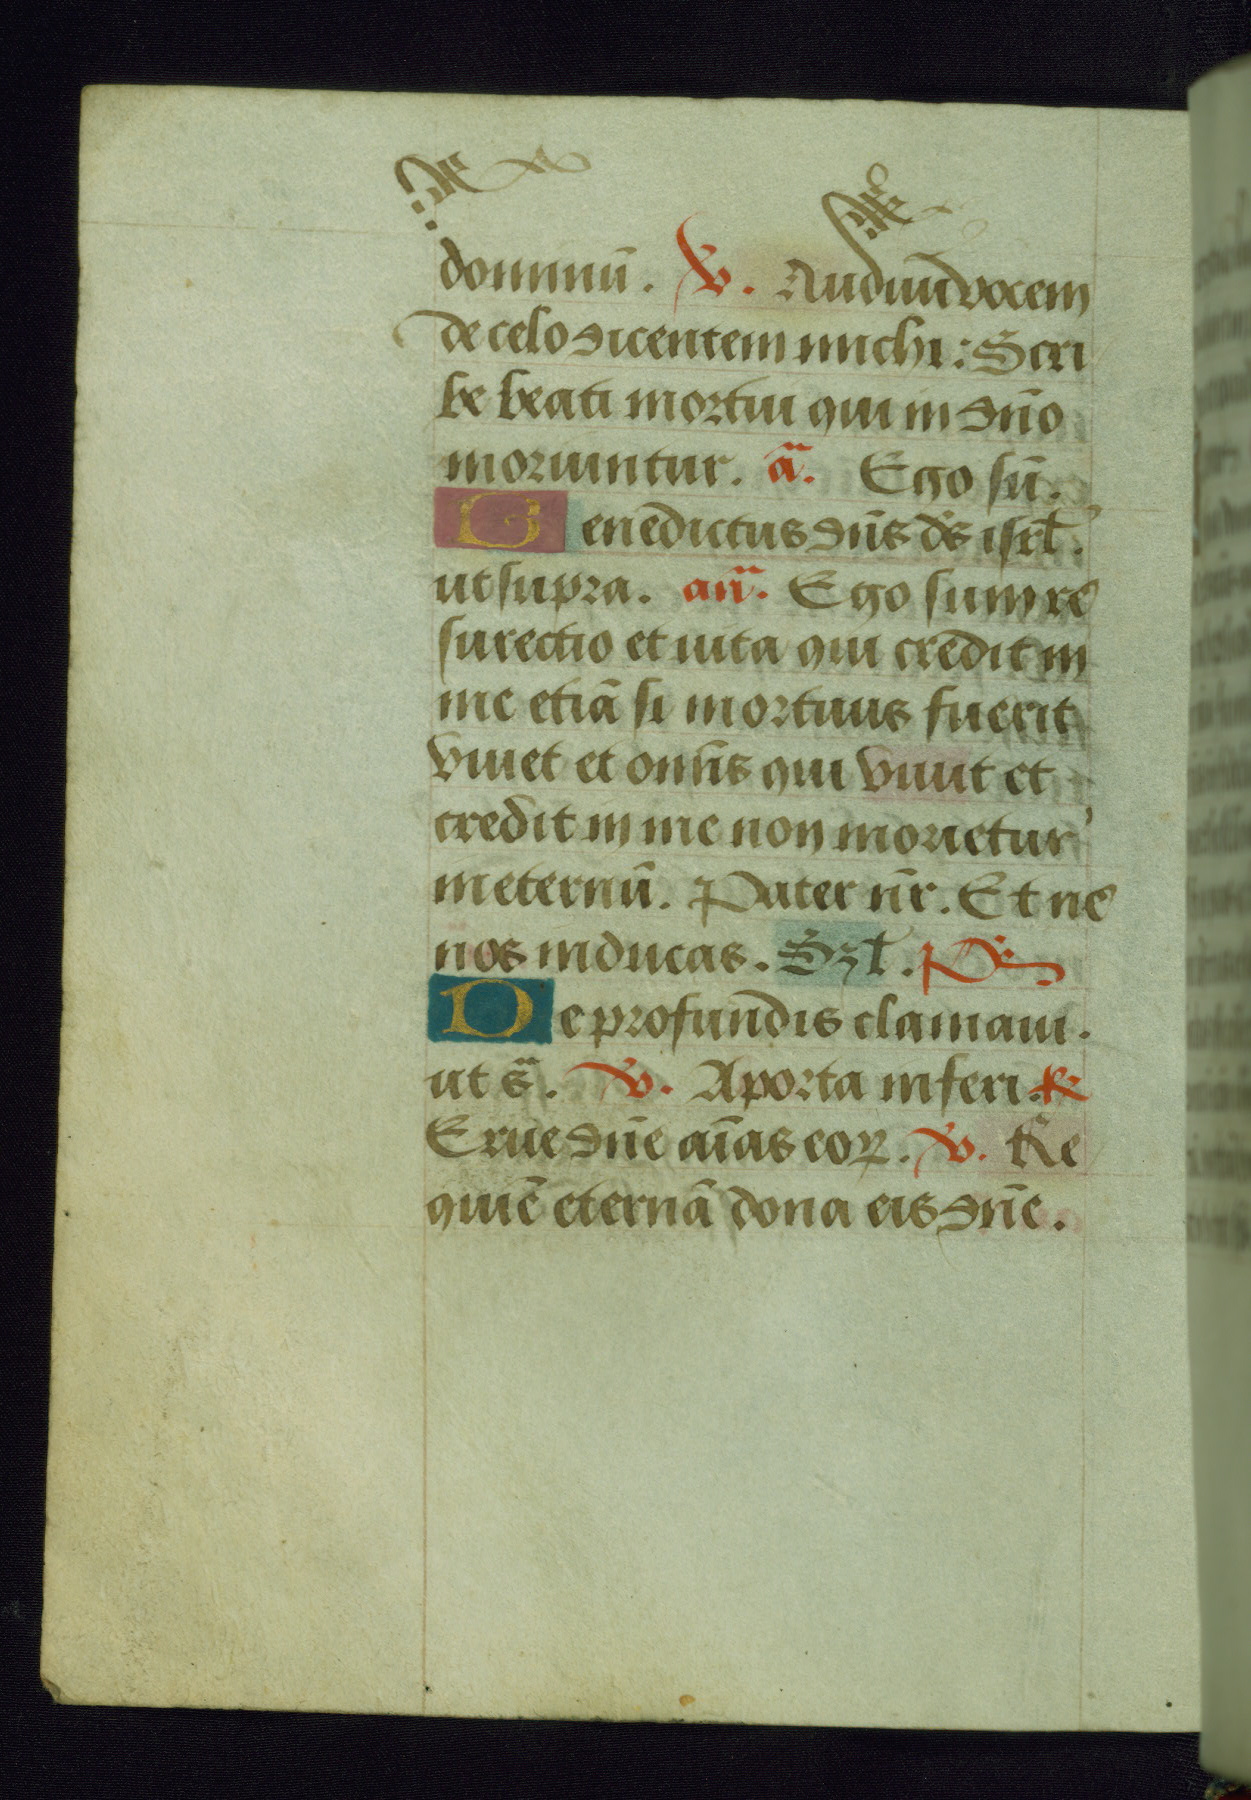 dominū. V. Audiui vocem
de celo dicentem michi: Scri
be beati mortui qui in dn̄o
moriuntur. ā. Ego sū.
Benedictus dn̄s ds̄ isrl̄.
ut supra. an̄. Ego sum re
surectio et uita qui credit in
me etiā si mortuus fuerit
viuet et omīs qui viuit et
credit in me non morietur
in eternū. Pater nr̄. Et ne
nos inducas. Sꝫ l̄. Ps̄
De profundis clamaui.
ut sᵃ. V. A porta inferi. R
Erue dn̄e aīas eoꝝ. V. Re
quiē eternā dona eis dn̄e.